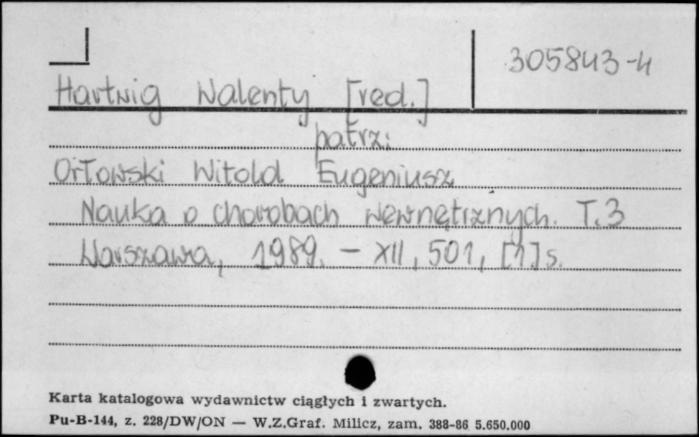 305843-4
Hartwig Walenty [red.]
patrz:
Orłowski Witold Eugeniusz
Nauka o chorobach wewnętrznych. T.3
Warszawa, 1989. – XII, 501, [1] s.
Karta katalogowa wydawnictw ciągłych i zwartych.
Pu-B-144, z. 228/DW/ON — W.Z.Graf. Milicz, zam. 388-86 5.650.000